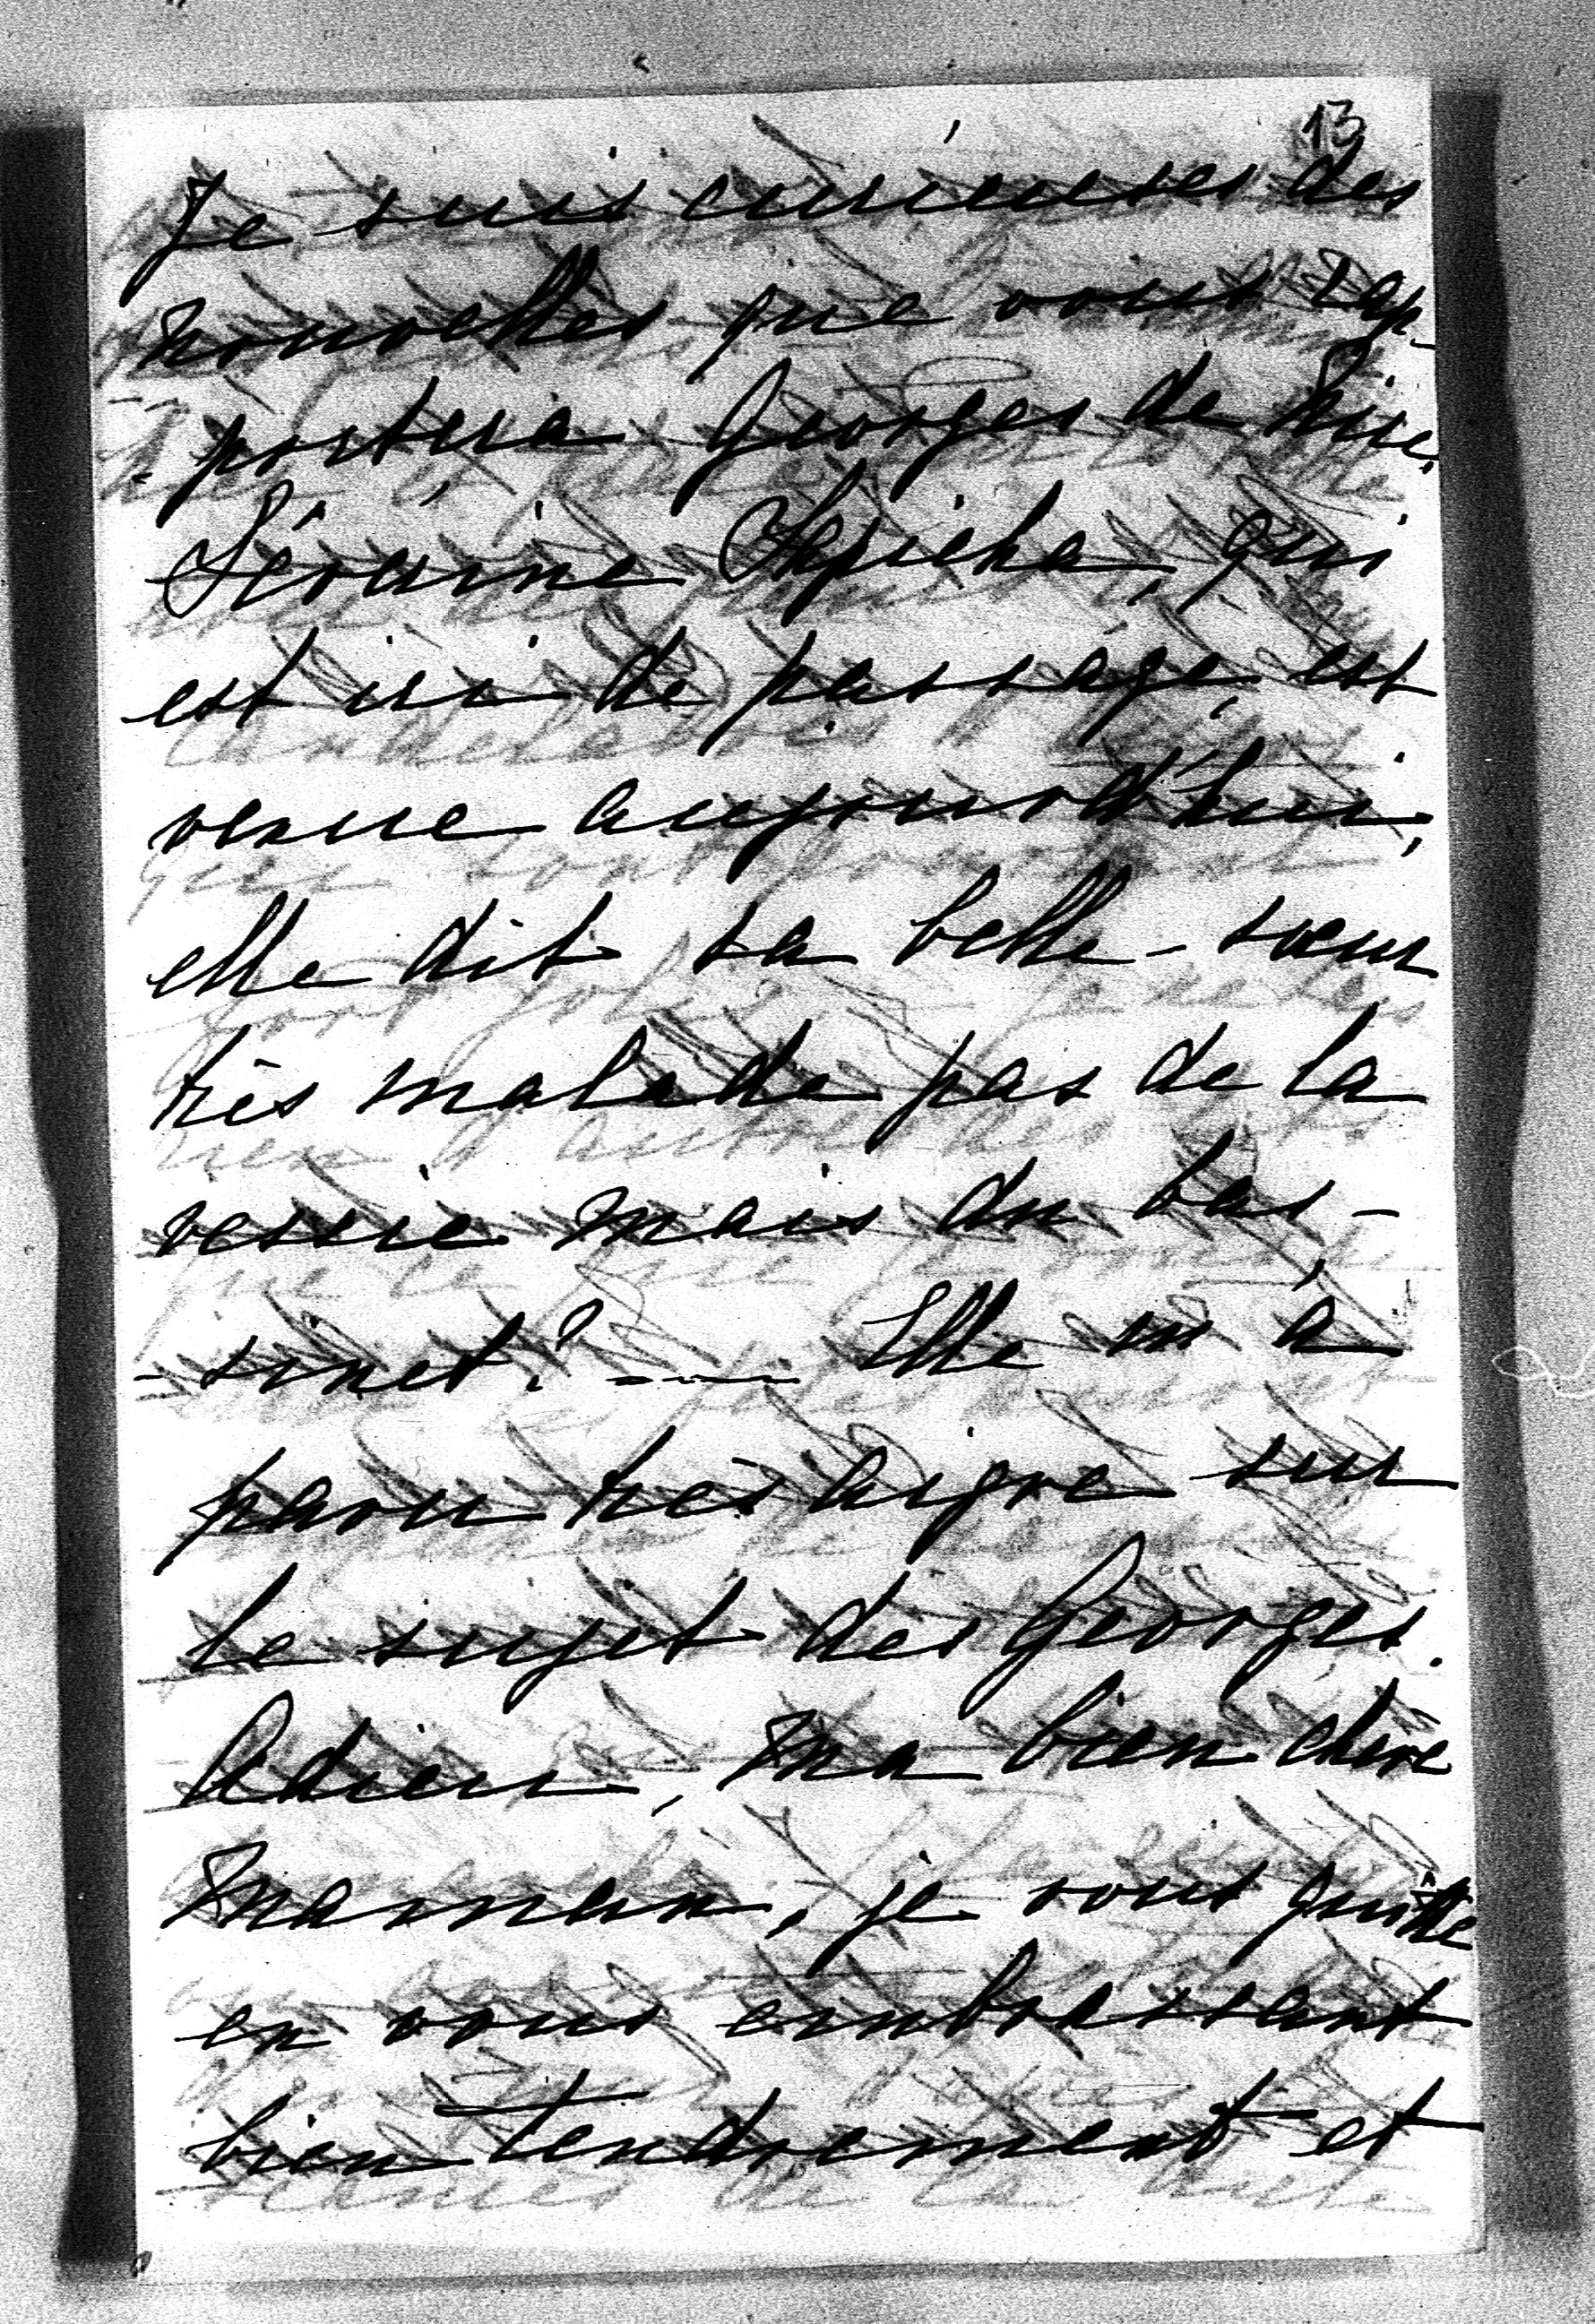 13
Je suis curieuses des
nouvelles que vous rap-
-portera Georges de Nice.
Séverine Sapieha, qui
est ici de passage, est
venue aujourd'hui,
elle dit sa belle-soeur
très malade pas de la
vessie mais du bas-
-sinet? — Elle m'a
paru très aigre sur
le sujet des Georges.
Adieu, ma bien chère
Maman, je vous quitte
en vous embrassant
bien tendrement et